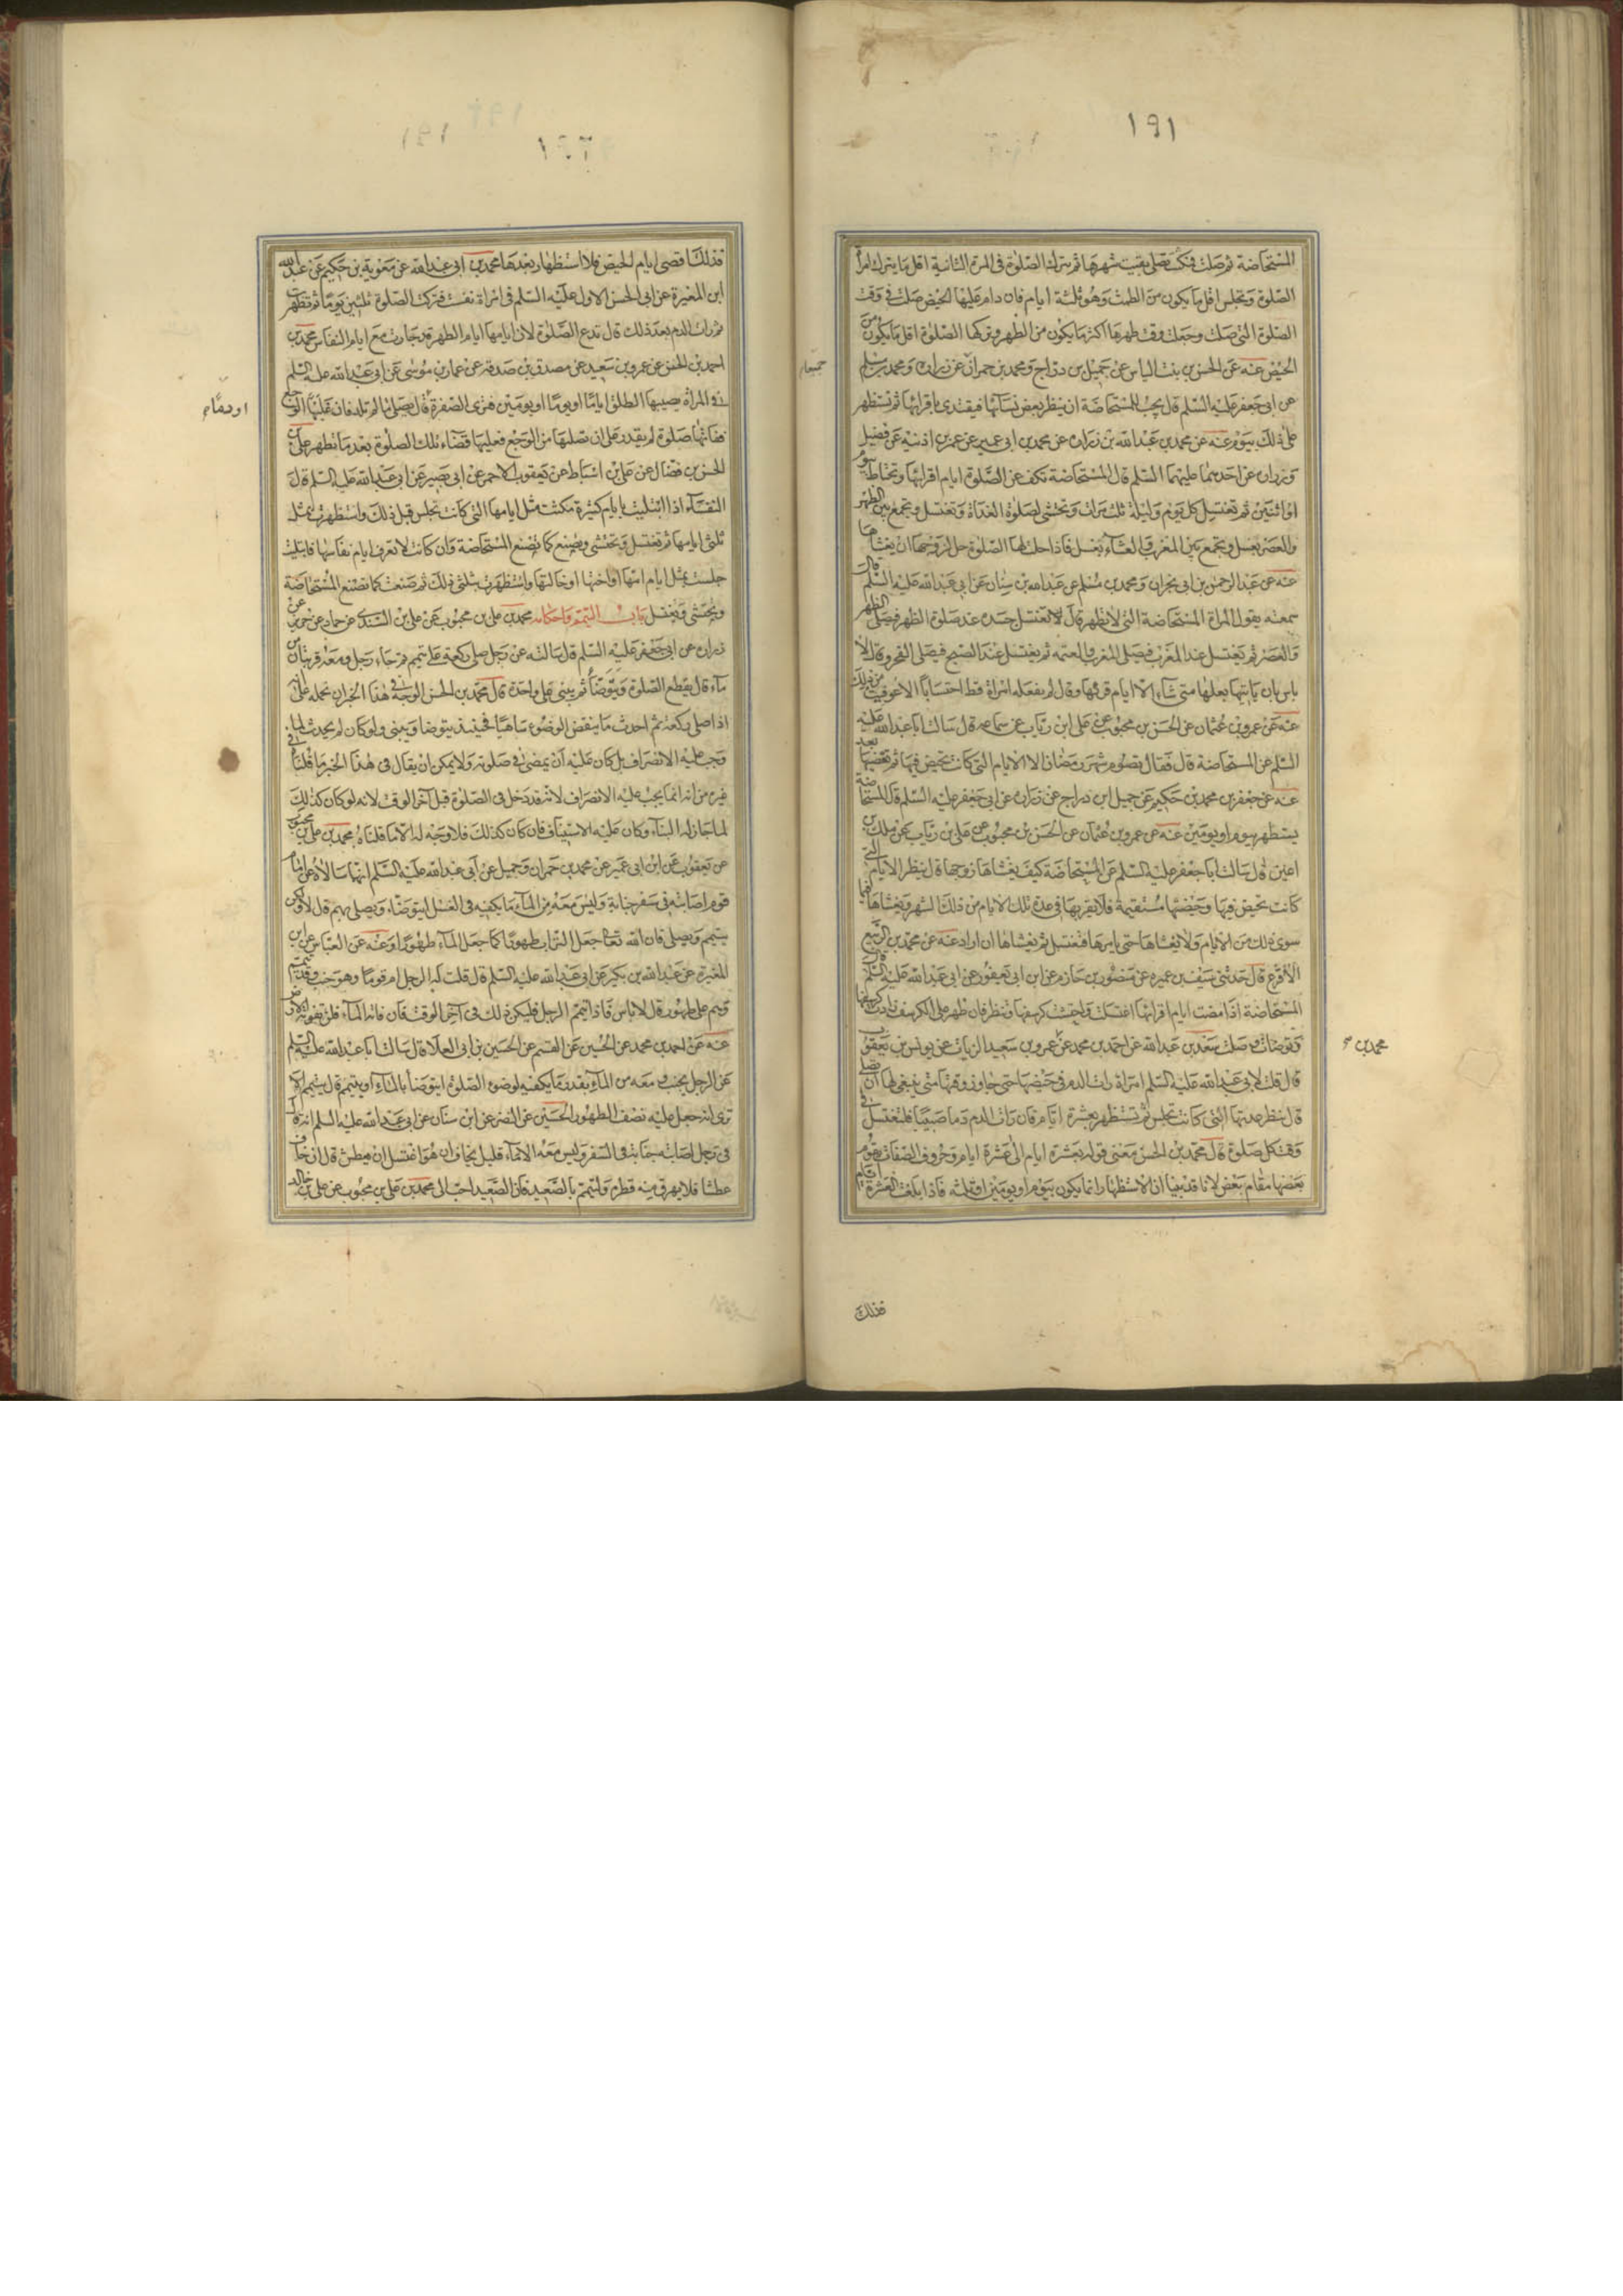 ١٩١
المستحاضة ثم صلت فمكثت تصلى بقيت شهرها ثم تترك الصلوة فى المرة الثانية اقل ما يترك امراة
الصلوة وتجلس اقل ما يكون من الطمث وهو ثلثة ايام فان دام عليها الحيض صلت فى وقت
الصلوة التى صلت وجعلت وقت طهرها اكثر ما يكون من الطهر وتركها الصلوة اقل ما يكون من
الحيض عنه عن الحسن بن بنت الياس عن جميل بن دراج ومحمد بن حمران عن زرارة ومحمد بن مسلم
جميعا
عن ابى جعفر عليه السلم قال يجب للمستحاضة ان ينظر بعض نسائها فيقتدى باقرائها ثم تستظهر
على ذلك بيوم عنه عن محمد بن عبد الله بن زرارة عن محمد بن ابى عمير عن عمر بن اذنيه عن فضيل
وزرارة عن احدهما عليهما السلم قال المستحاضة تكف عن الصلوة ايام اقرائها وتحتاط بيوم
او اثنين ثم تغتسل كل يوم وليلة ثلث مرات وتحتشى لصلوة الغداة وتغتسل وتجمع بين الظهر
والعصر بغسل وتجمع بين المغرب والعشاء بغسل فاذا حلت لها الصلوة حل لزوجها ان يغشاها
عنه عن عبد الرحمن بن ابى نجران ومحمد بن مسلم عن عبد الله بن سنان عن ابى عبد الله عليه السلم قال
سمعته يقول المراة المستحاضة التى لا تطهر قال تغتسل عند صلوة الظهر فيصلى الظهر
والعصر ثم يغتسل عند المغرب فيصلى المغرب والعتمه ثم يغتسل عند الصبح فيصلى الفجر وقال لا
باس بان ياتيها بعلها متى شاء الا ايام قرئها وقال لم يفعله امراة قط احتسابا الا عوفيت من ذلك
عنه عن عمرو بن عثمان عن الحسن بن محبوب عن على ابن رباب عن سماعه قال سالت ابا عبد الله عليه
السلم عن المستحاضة قال فقال تصوم شهر رمضان الا الايام التى كانت تحيض فيها ثم تقضيها بعد
عنه عن جعفر بن محمد بن حكيم عن جميل ابن دراج عن زرارة عن ابى جعفر عليه السلم قال المستحاضة
يستظهر بيوم او يومين عنه عن عمرو بن عثمان عن الحسن بن محبوب عن على بن رباب عن ملك بن
اعين قال سالت ابا جعفر عليه السلم عن المستحاضة كيف يغشاها زوجها قال ينظر الايام التى
كانت تحيض فيها وحيضتها مستقيمة فلا يقربها فى عدة تلك الايام من ذلك الشهر ويغشاها فيما
سوى ذلك من الايام ولا يغشاها حتى يامرها فتغتسل ثم يغشاها ان اراد عنه عن محمد بن الربيع
الاقرع قال حدثنى سيف بن عميره عن منصور بن حازم عن ابن ابى يعفور عن ابى عبد الله عليه السلم قال
المستحاضة اذا مضت ايام اقرائها اغتسلت واحتشت كرسفها وتنظر فان ظهر على الكرسف زادت كرسفها
وتوضات وصلت سعد بن عبد الله عن احمد بن محمد عن عمرو بن سعيد الزيات عن يونس بن يعقوب
محمد بن
قال قلت لابى عبد الله عليه السلم امراة رات الدم فى حيضها حتى جاوز وقتها متى ينبغى لها ان تصلى
قال تنظر عدتها التى كانت تجلس ثم تستظهر بعشرة ايام فان رات الدم دما صبيبا فلتغتسل فى
وقت كل صلوة قال محمد بن الحسن معنى قوله بعشرة ايام الى عشرة ايام وحروف الصفات يقوم
بعضها مقام بعض لانا قد بينا ان الاستظهار انما يكون بيوم او يومين او ثلثه فاذا بلغت العشرة ايام
فذلك
فذلك اقصى ايام الحيض فلا استظهار بعدها محمد بن ابى عبد الله عن معوية بن حكيم عن عبد الله
ابن المغيرة عن ابى الحسن الاول عليه السلم فى امراة نفست فتركت الصلوة ثلثين يوما ثم تطهرت
ثم رات الدم بعد ذلك قال تدع الصلوة لان ايامها ايام الطهر قد جازت مع ايام النفاس محمد بن
احمد بن الحسن عن عمرو بن سعيد عن مصدق بن صدقه عن عمار بن موسى عن ابى عبد الله عليه السلم
فى المراة يصيبها الطلق اياما او يوما او يومين فترى الصفرة قال تصلى ما لم تلد فان غلبها الوجع
او دما
ففاتها صلوة لم يقدر على ان تصليها من الوجع فعليها قضاء تلك الصلوة بعد ما تطهر على بن
الحسن بن فضال عن على بن اسباط عن يعقوب الاحمر عن ابى بصير عن ابى عبد الله عليه السلم قال
النفساء اذا ابتليت بايام كثيرة مكثت مثل ايامها التى كانت تجلس قبل ذلك واستظهرت بمثل
ثلثى ايامها ثم تغتسل وتحتشى ويصنع كما تصنع المستحاضة وان كانت لا تعرف ايام نفاسها فابتليت
جلست بمثل ايام امها او اختها او خالتها واستظهرت بثلثى ذلك ثم صنعت كما تصنع المستحاضة
وتحتشى وتغتسل باب التيمم واحكامه محمد بن على بن محبوب عن على بن السندى عن حماد عن حريز عن
زرارة عن ابى جعفر عليه السلم قال سالته عن رجل صلى ركعة على تيمم ثم جاء رجل ومعه قربتان من
ماء قال يقطع الصلوة ويتوضا ثم يبنى على واحدة قال محمد بن الحسن الوجه فى هذا الخبر ان نحمله على انه
اذا صلى ركعة ثم احدث ما ينقض الوضوء ساهيا فحينئذ يتوضا ويبنى ولو كان لم يحدث لما
وجب عليه الانصراف بل كان عليه ان يمضى فى صلوته ولا يمكن ان يقال فى هذا الخبر ما قلنا فى
غيره من انه انما يجب عليه الانصراف لانه قد دخل فى الصلوة قبل آخر الوقت لانه لو كان كذلك
لما جاز له البناء وكان عليه الاستيناف فان كان كذلك فلا وجه له الا ما قلناه محمد بن على بن محبوب
عن يعقوب عن ابن ابى عمير عن محمد بن حمران وجميل عن ابى عبد الله عليه السلم انهما سالاه عن امام
قوم اصابته فى سفر جنابة وليس معه من الماء ما يكفيه فى الغسل ايتوضاء ويصلى بهم قال لا ولكن
يتيمم ويصلى فان الله تعالى جعل التراب طهورا كما جعل الماء طهورا وعنه عن العباس عن ابن
المغيرة عن عبد الله بن بكير عن ابى عبد الله عليه السلم قال قلت له الرجل ام قوما وهو جنب وقد تيمم
وهم على طهور قال لا باس فاذا تيمم الرجل فليكن ذلك فى آخر الوقت فان فاته الماء فلن تفوته الارض
عنه عن احمد بن محمد عن الحسين عن القسم عن الحسين بن ابى العلا قال سالت ابا عبد الله عليه السلم
عن الرجل يجنب ومعه من الماء بقدر ما يكفيه لوضوء الصلوة ايتوضا بالماء او يتيمم قال يتيمم الا
ترى انه جعل عليه نصف الطهور الحسين عن النضر عن ابن سنان عن ابى عبد الله عليه السلم انه قال
فى رجل اصابته جنابة فى السفر وليس معه الا ماء قليل يخاف ان هو اغتسل ان يعطش قال ان خاف
عطشا فلا يهرق منه قطرة وليتيمم بالصعيد فان الصعيد احب الى محمد بن على بن محبوب عن على بن خالد